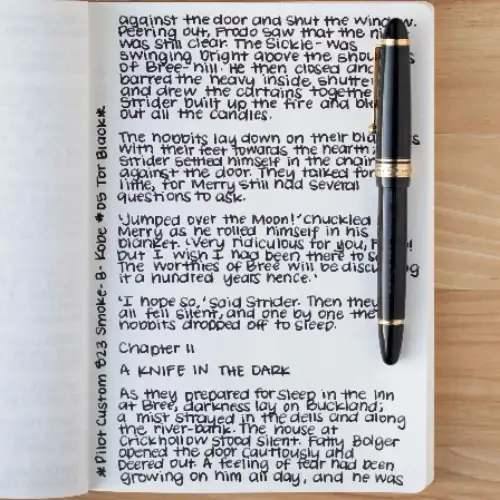 against the door and shut the window.
Peering out, Frodo saw that the ni
was still clear. The Sickle was
swinging bright above the shou s
of Bree-hill. He then closed and
barred the heavy inside shutte
and drew the curtains togethe
Strider built up the fire and bl
out all the candles.
The hobbits lay down on their bla s
with their feet towards the hearth;
Strider settled himself in the chair
against the door. They talked for
little, for Merry still had several
questions to ask.
'Jumped over the Moon!' chuckled
Merry as he rolled himself in his
blanket. 'Very ridiculous for you, F !
But I wish I had been there to se
The worthies of Bree will be discu g
it a hundred years hence.'
'I hope so,' said Strider. Then they
all fell silent, and one by one the
hobbits dropped off to sleep.
Chapter 11
A KNIFE IN THE DARK
As they prepared for sleep in the inn
at Bree, darkness lay on Buckland;
a mist strayed in the dells and along
the river-bank. The house at
Crickhollow stood silent. Fatty Bolger
opened the door cautiously and
peered out. A feeling of fear had been
growing on him all day, and he was
*Pilot Custom 823 Smoke-B- Kobe #05 Tor Black*